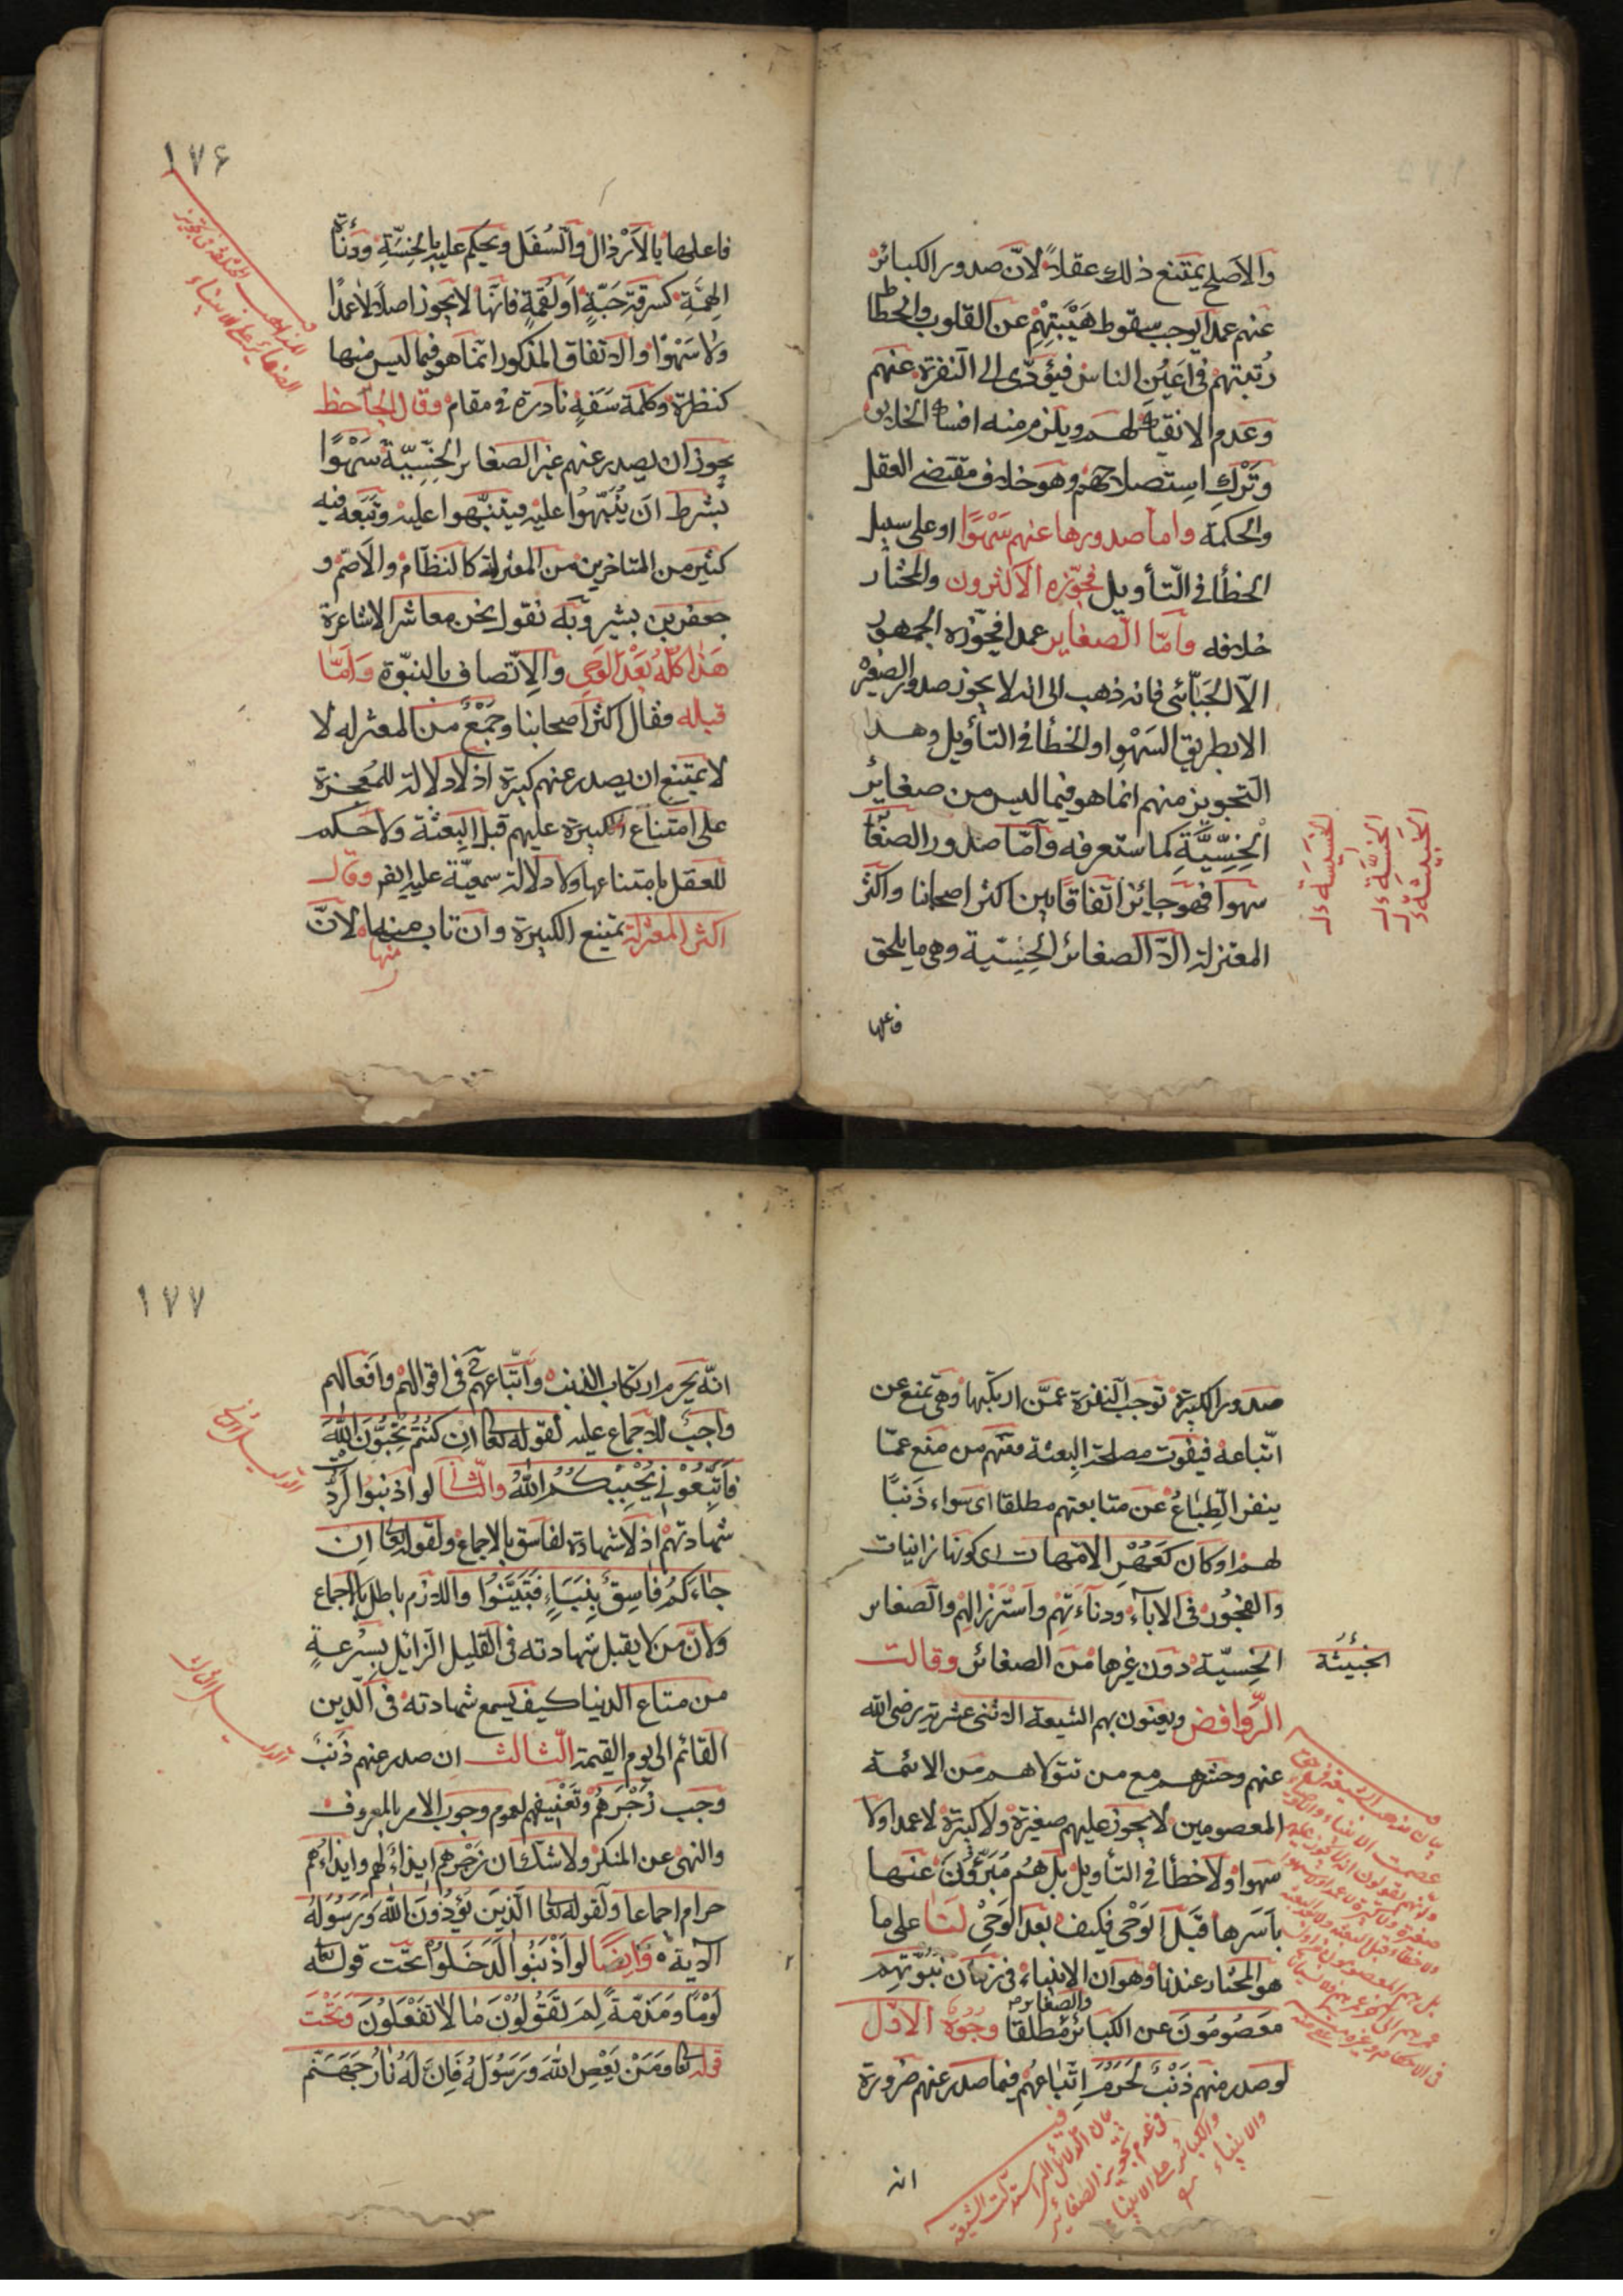 والاصلح يمتنع ذلك عقلاً لانّ صدور الكبائر
عنهم عمدا يوجب سقوط هَيْبَتِهِمْ عن القلوب وانحطاط
رُتبتهم في اَعيُن الناس فيؤدّى الى النفرة عنهم
وعدم الانقياد لهم ويلزم منه افساد الخلايق
وَتَرْكِ اِستصلاحهم وهو خلاف مقتضى العقل
والحكمة واما صدورها عنهم سَهْوًا او على سبيل
الخطأ في التأويل فجوّزه الاكثرون والمختار
خلافه وامّا الصغاير عمدا فجوّزه الجمهور
الّا الجبّائى فانه ذهب الى انه لا يجوز صدور الصغير
الا بطريق السَهْوِ او الخطأ في التأويل وهذا
التجويز منهم انما هو فيما ليس من صغائر
الْخِسِّيَّةِ كما ستعرفه وامّا صدور الصغاير
سهوا فهو جايز اتّفاقا بين اكثر اصحابنا واكثر
المعتزلة الّا الصغائر الخِسِّية وهى ما يلحق
فاعلها
الخسيسة ل
الخسيَّة ل
الخبيثة ل
١٧۶
فاعلها بالاَرْذال والسُفَل ويحكم عليه بالخِسّة ودنائة
الهِمَّةِ كسرقة حَبّةٍ او لُقمةٍ فانها لا يجوز اصلا لا عمدًا
ولا سَهْوًا والاتفاق المذكور انّما هو فيما ليس منها
كنظرة وكلمة سَفَهٍ نادرة في مقام وقال الجاحظ
يجوز ان يصدر عنهم غير الصغاير الخِسِّيّة سَهْوًا
بشرط ان يُنَبّهُوا عليه فيتنبّهوا عليه وتَبَعه فيه
كثير من المتاخرين من المعتزلة كالنظّام والاَصمّ و
جعفر بن بشير وبه نقول نحن معاشر الاشاعرة
هذا كلّه بَعْدَ الوَحى والاِتّصاف بالنبوّة وَامّا
قبله فقال اكثر اصحابنا وجَمْعٌ من المعتزله لا
لا يمتنع ان يصدر عنهم كبيرة اذ لا دلالة للمُعجزة
على امتناع الكبيرة عليهم قبل البِعثة ولا حكم
للعقل بامتناعها ولا دلالة سمعيّة عليه ايضا وقال
اكثر المعتزلة تمتنع الكبيرة وان تاب منها لانّ
منها
صدور الكبيرة توجب النفرة عمّن ارتكبها وهى تمنع عن
اتّباعه فيفوت مصلحة البِعثة ومنهم من منع عمّا
ينفر الطِباعُ عن متابعتهم مطلقا اى سواء ذَنبًا
لهم او كان كَعَهْرِ الامّهات اى كونها زانيات
والفجُور فى الاباء ودناءَتِهِم واسْتِرْذالِهِم والصغاير
الخِسيّة دون غيرها من الصغائر وقالت
الخَبِيثَة
الرّوافض ويعنون بهم الشيعة الاثنى عشرية رضى الله
عنهم وحشرهم مع من تولاهم من الائمة
المعصومين لا يجوز عليهم صغيرة ولا كبيرة لا عمدا ولا
سهوا ولا خطأ في التأويل بل هُم مُبَرَّؤُنَ عنها
باَسَرها قَبلَ الوَحْى فكيف بعد الوَحْىِ لَنا على ما
هو المختار عندنا وهو ان الانبياء فى زمان نبوّتهم
والصغاير
معصُومُونَ عن الكبائر مطلقا وجُوهٌ الاوّل
لو صدر منهم ذَنْبٌ لَحَرُمَ اِتّباعُهُم فيما صدر عنهم ضرورة
انه
بيان الدلائل التى استدلت الشيعة
فى عدم تجويز الصغاير
والكبائر على الانبياء
١٧٧
انّه يحرم ارتكاب الذنب واتّباعهم فى اقوالهم وافعالهم
واجبٌ للاجماع عليه لقوله تعا اِنْ كُنْتُمْ تُحِبُّونَ اللّهَ
فَاتَّبِعُونِى يُحْبِبْكُمُ اللّهُ والثّانى لو اذنبوا لَرُدَّت
شهادتهم اذ لا شهادة لفاسق بالاجماع ولقوله تعا اِنْ
جاءَكُمْ فَاسِقٌ بِنَبَاٍ فَتَبَيَّنُوا واللازم باطل بالاجماع
ولانّ من لا يقبل شهادته فى القليل الزائل بسُرعةٍ
من متاع الدنيا كيف يسمع شهادته فى الدّين
القائم الى يوم القيمة الثالث ان صدر عنهم ذَنبٌ
وجب زَجْرُهُمْ وتَعْنيفُهم لعموم وجوب الامر بالمعروف
والنهى عن المنكر ولا شك ان زَجْرهم ايذاءٌ لهم وايذاءُهم
حرام اجماعا ولقوله تعا الَّذِينَ يُؤْذُونَ اللّهَ وَرَسُولَهُ
الآية وَاَيضًا لو اَذْنَبُوا لَدَخلُوا تحت قوله تعا
لَوْمًا وَمَذمّةً لِمَ تَقُولُونَ مٰا لا تَفْعَلُونَ وَتَحْتَ
قوله تعا وَمَنْ يَعْصِ اللّهَ وَرَسُولَهُ فَاِنَّ لَهُ نٰارَ جَهَنَّم
الدليل الثانى
الدليل الثالث